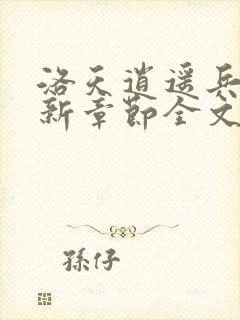 洛天逍遥兵
新章節全文
孫仔